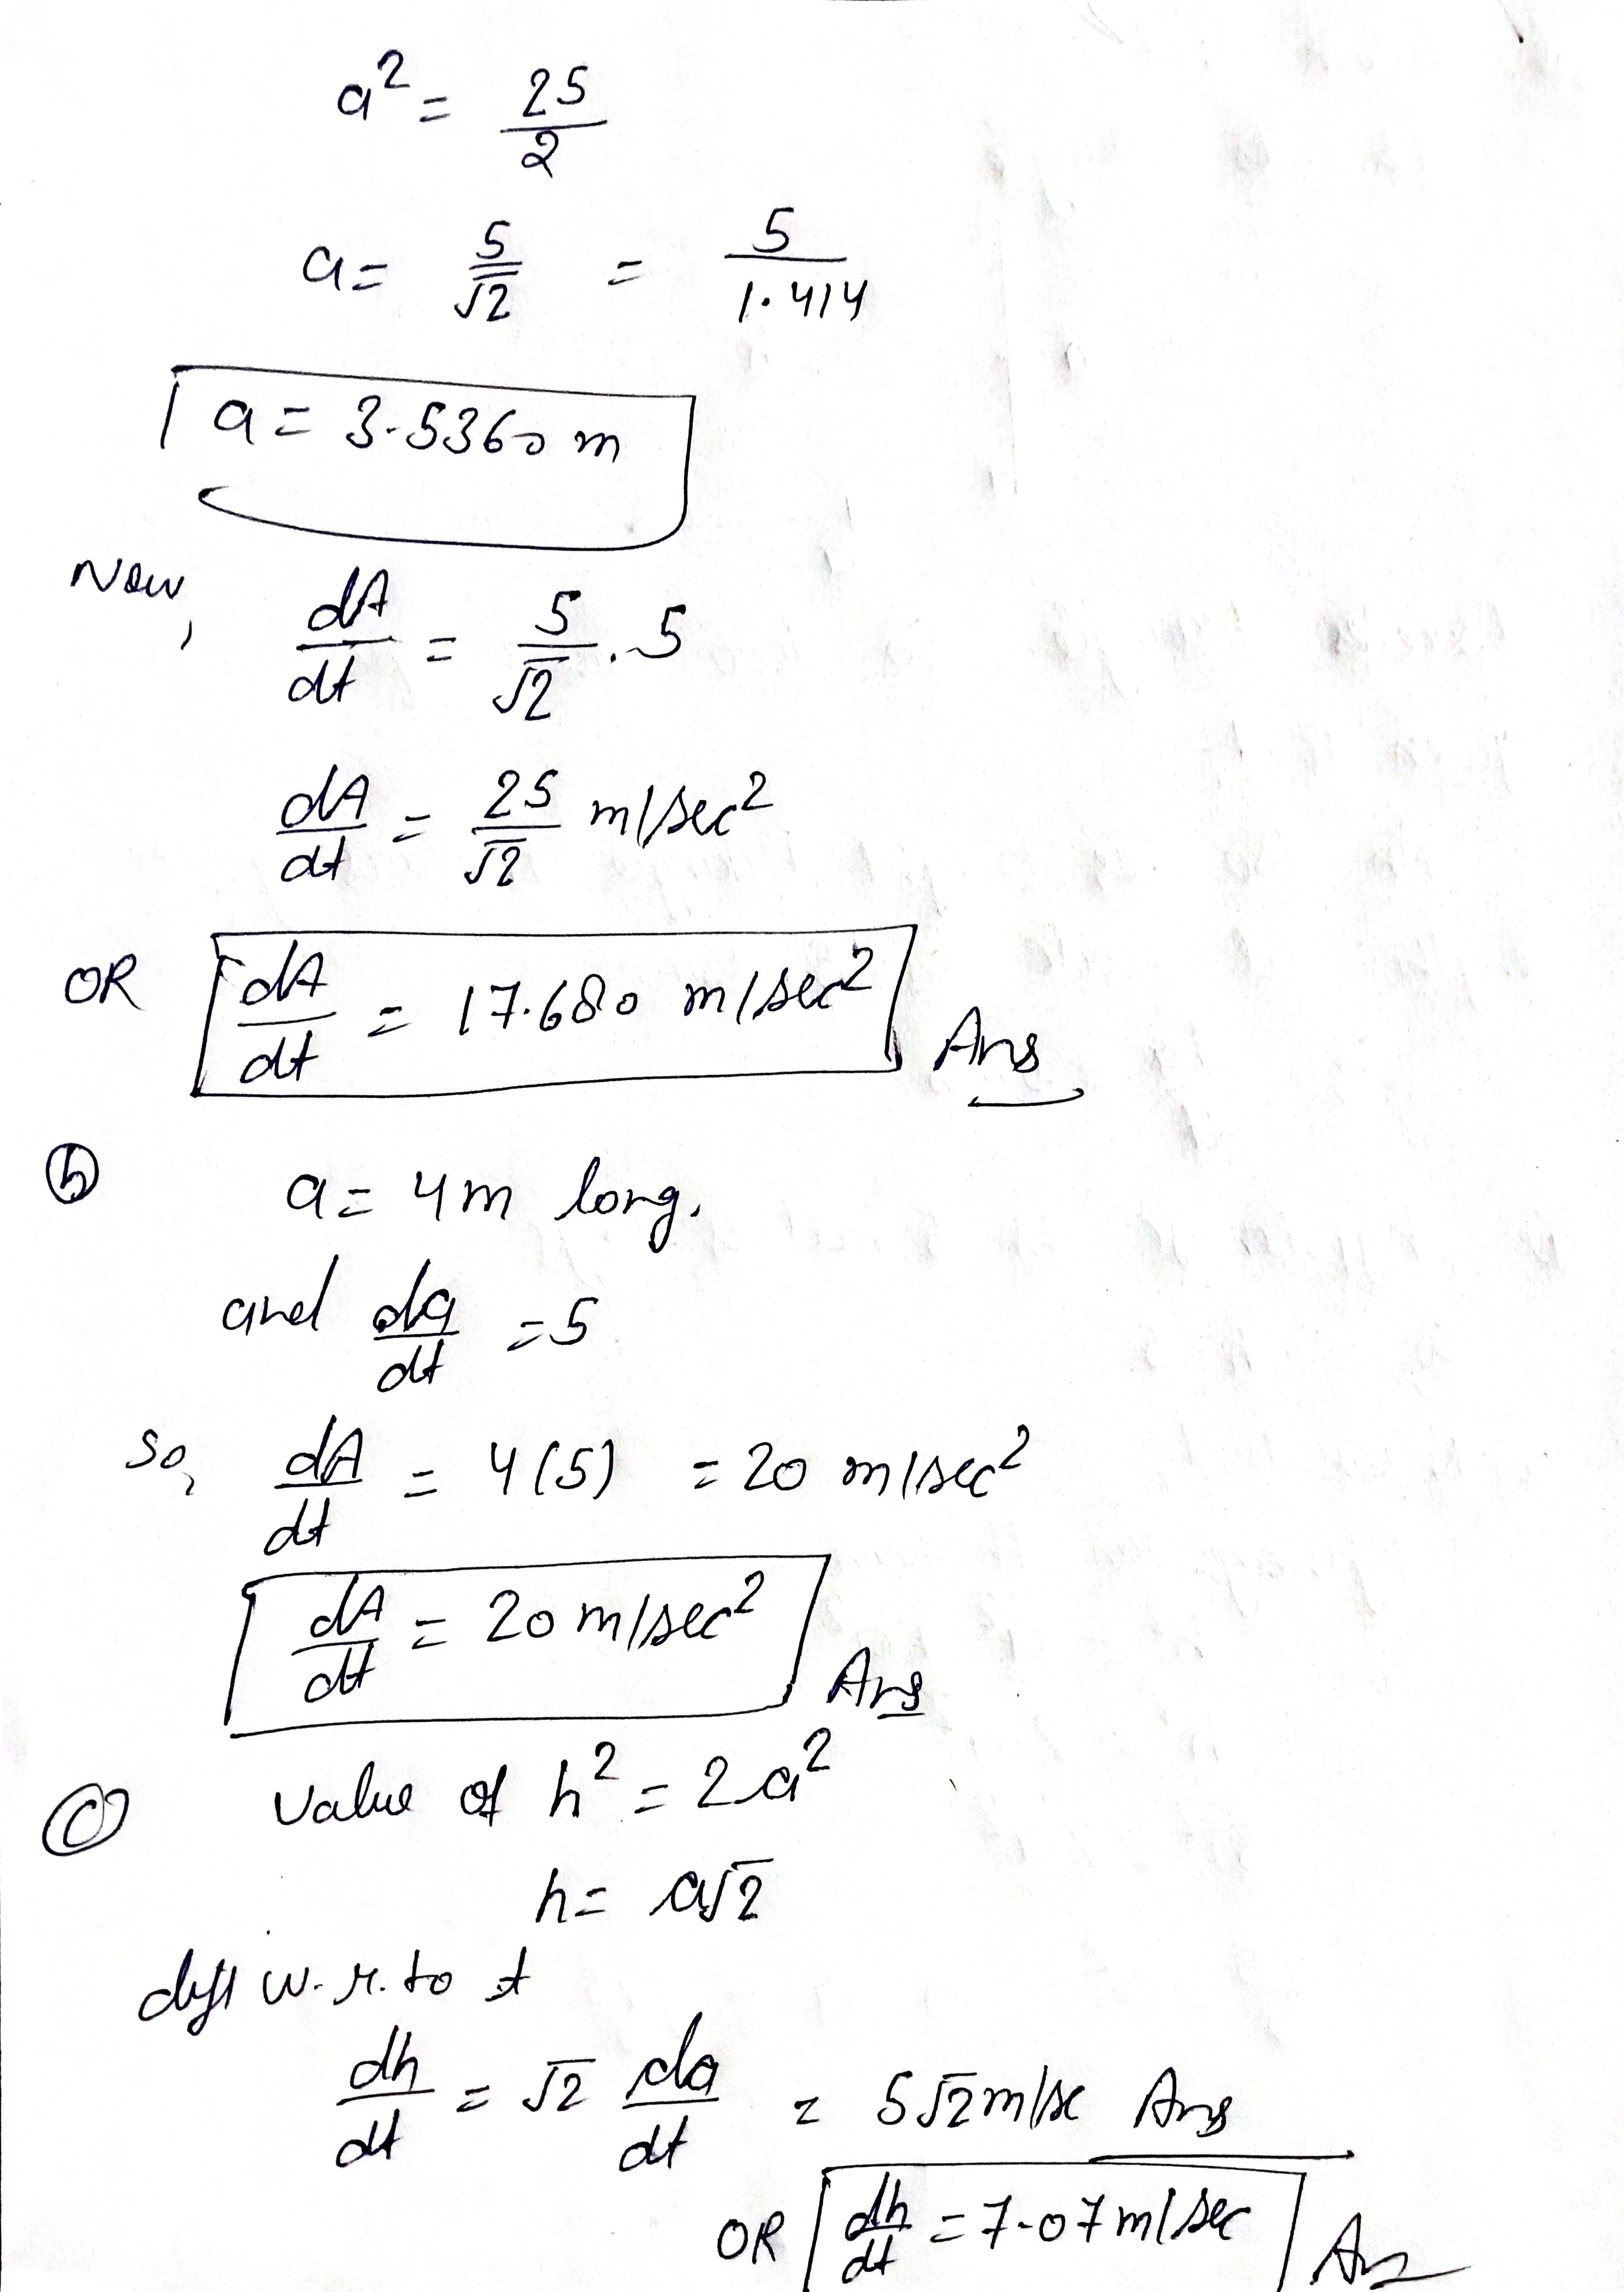 a² = 25/2
a = 5/√2 = 5/1.414
a = 3.5360 m
Now, dA/dt = 5/√2 . 5
dA/dt = 25/√2 m/sec²
OR dA/dt = 17.680 m/sec² Ans
(b) a = 4m long.
and da/dt = 5
So, dA/dt = 4(5) = 20 m/sec²
dA/dt = 20 m/sec² Ans
(c) value of h² = 2a²
h = a√2
diff w.r.to t
dh/dt = √2 da/dt = 5√2 m/se Ans
OR dh/dt = 7.07 m/sec Ans